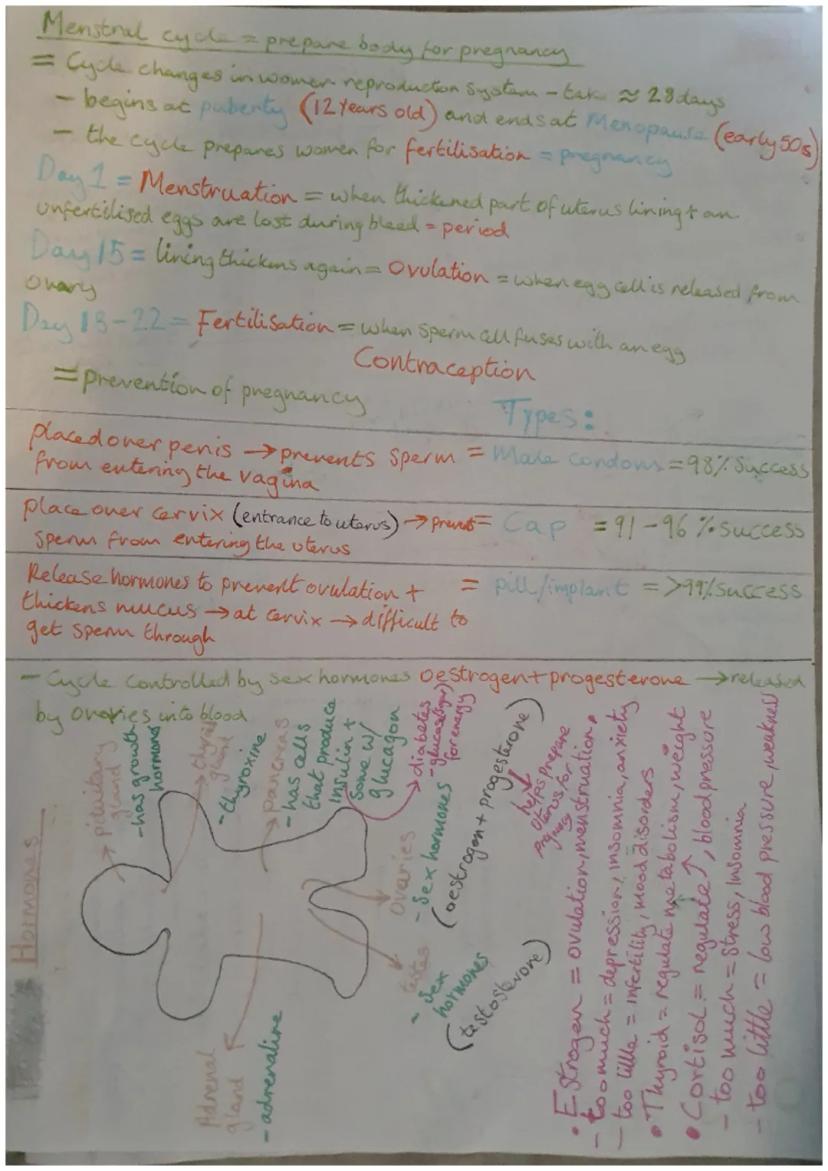 Menstral cycle = prepare body for pregnancy
= Cycle changes in women reproducton system - tak ≈ 28 days
- begins at puberty (12 years old) and ends at Menopause (early 50s)
- the cycle prepares women for fertilisation = pregnancy
Day 1 = Menstruation = when thickened part of uterus lining + an
unfertilised eggs are lost during bleed = period
Day 15 = lining thickens again = Ovulation = when egg cell is released from
ovary
Day 13-22 = Fertilisation = when sperm cell fuses with an egg
Contraception
= prevention of pregnancy
Types:
placed over penis → prevents sperm = Male condom = 98% success
from entering the vagina
place over cervix (entrance to uterus) → prevent = Cap = 91-96% success
sperm from entering the uterus
Release hormones to prevent ovulation + = pill/implant = >99% success
thickens mucus → at cervix → difficult to
get sperm through
- Cycle controlled by sex hormones oestrogen + progesterone → released
by ovaries into blood
Hormones
pituitary
gland
- has growth
hormone
thyroid
gland
- thyroxine
pancreas
- has cells
that produce
insulin +
some w/
glucagon
→ diabetes
- glucose (sugar)
for energy
ovaries
- sex hormones
(oestrogen + progesterone)
helps prepare
uterus for
pregnancy
testes
- sex
hormones
(testosterone)
Adrenal
gland
- adrenaline
• Estrogen = ovulation, menstruation,
- too much = depression, insomnia, anxiety
- too little = infertility, mood disorders
• Thyroid = regulate metabolism, weight
• Cortisol = regulate ↑, blood pressure
- too much = stress, insomnia
- too little = low blood pressure, weakness